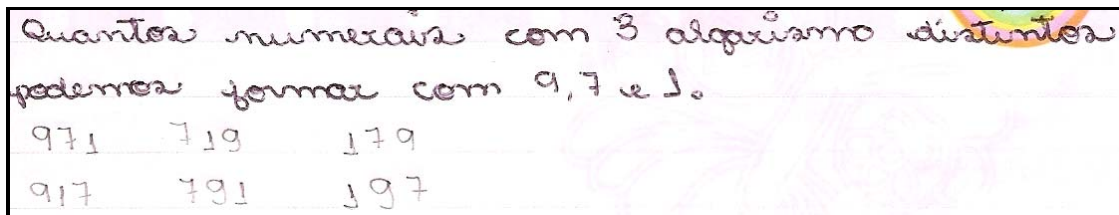 Quantos numerais com 3 algarismo distintos
podemos formar com 9,7 e 1.
971 719 179
917 791 197